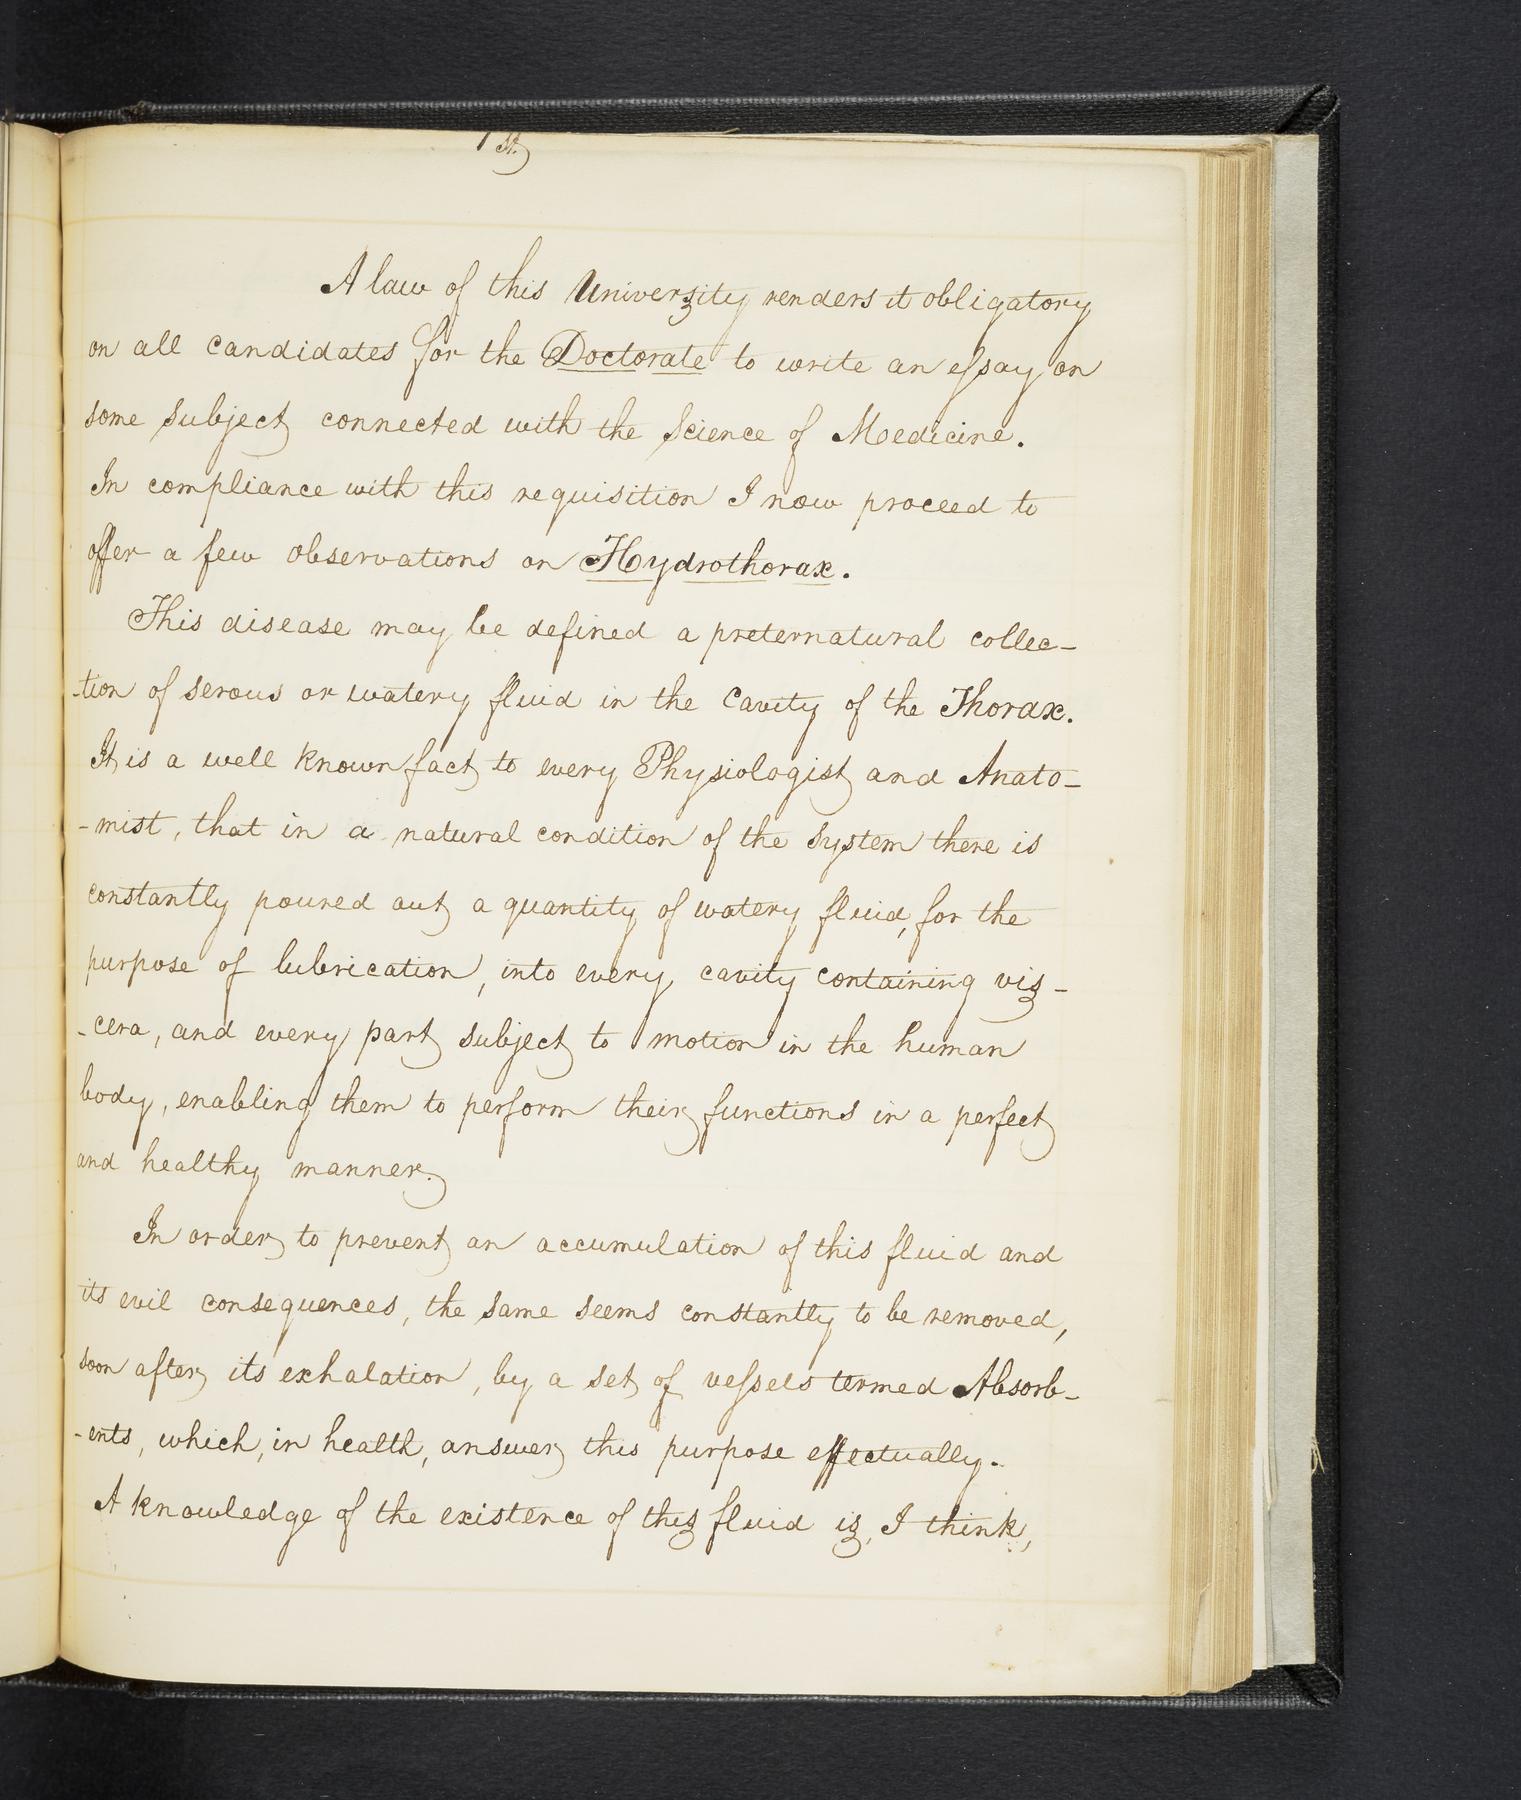 1st.
A law of this University renders it obligatory
on all candidates for the Doctorate to write an essay on
some subject connected with the Science of Medicine.
In compliance with this requisition I now proceed to
offer a few observations on Hydrothorax.
This disease may be defined a preternatural collec-
-tion of serous or watery fluid in the Cavity of the Thorax.
It is a well known fact to every Physiologist and Anato-
-mist, that in a natural condition of the system there is
constantly poured out a quantity of watery fluid, for the
purpose of lubrication, into every cavity containing vis-
-cera, and every part subject to motion in the human
body, enabling them to perform their functions in a perfect
and healthy manner.
In order to prevent an accumulation of this fluid and
its evil consequences, the same seems constantly to be removed,
soon after its exhalation, by a set of vessels termed Absorb-
-ents, which, in health, answer this purpose effectually.
A knowledge of the existence of this fluid is, I think,